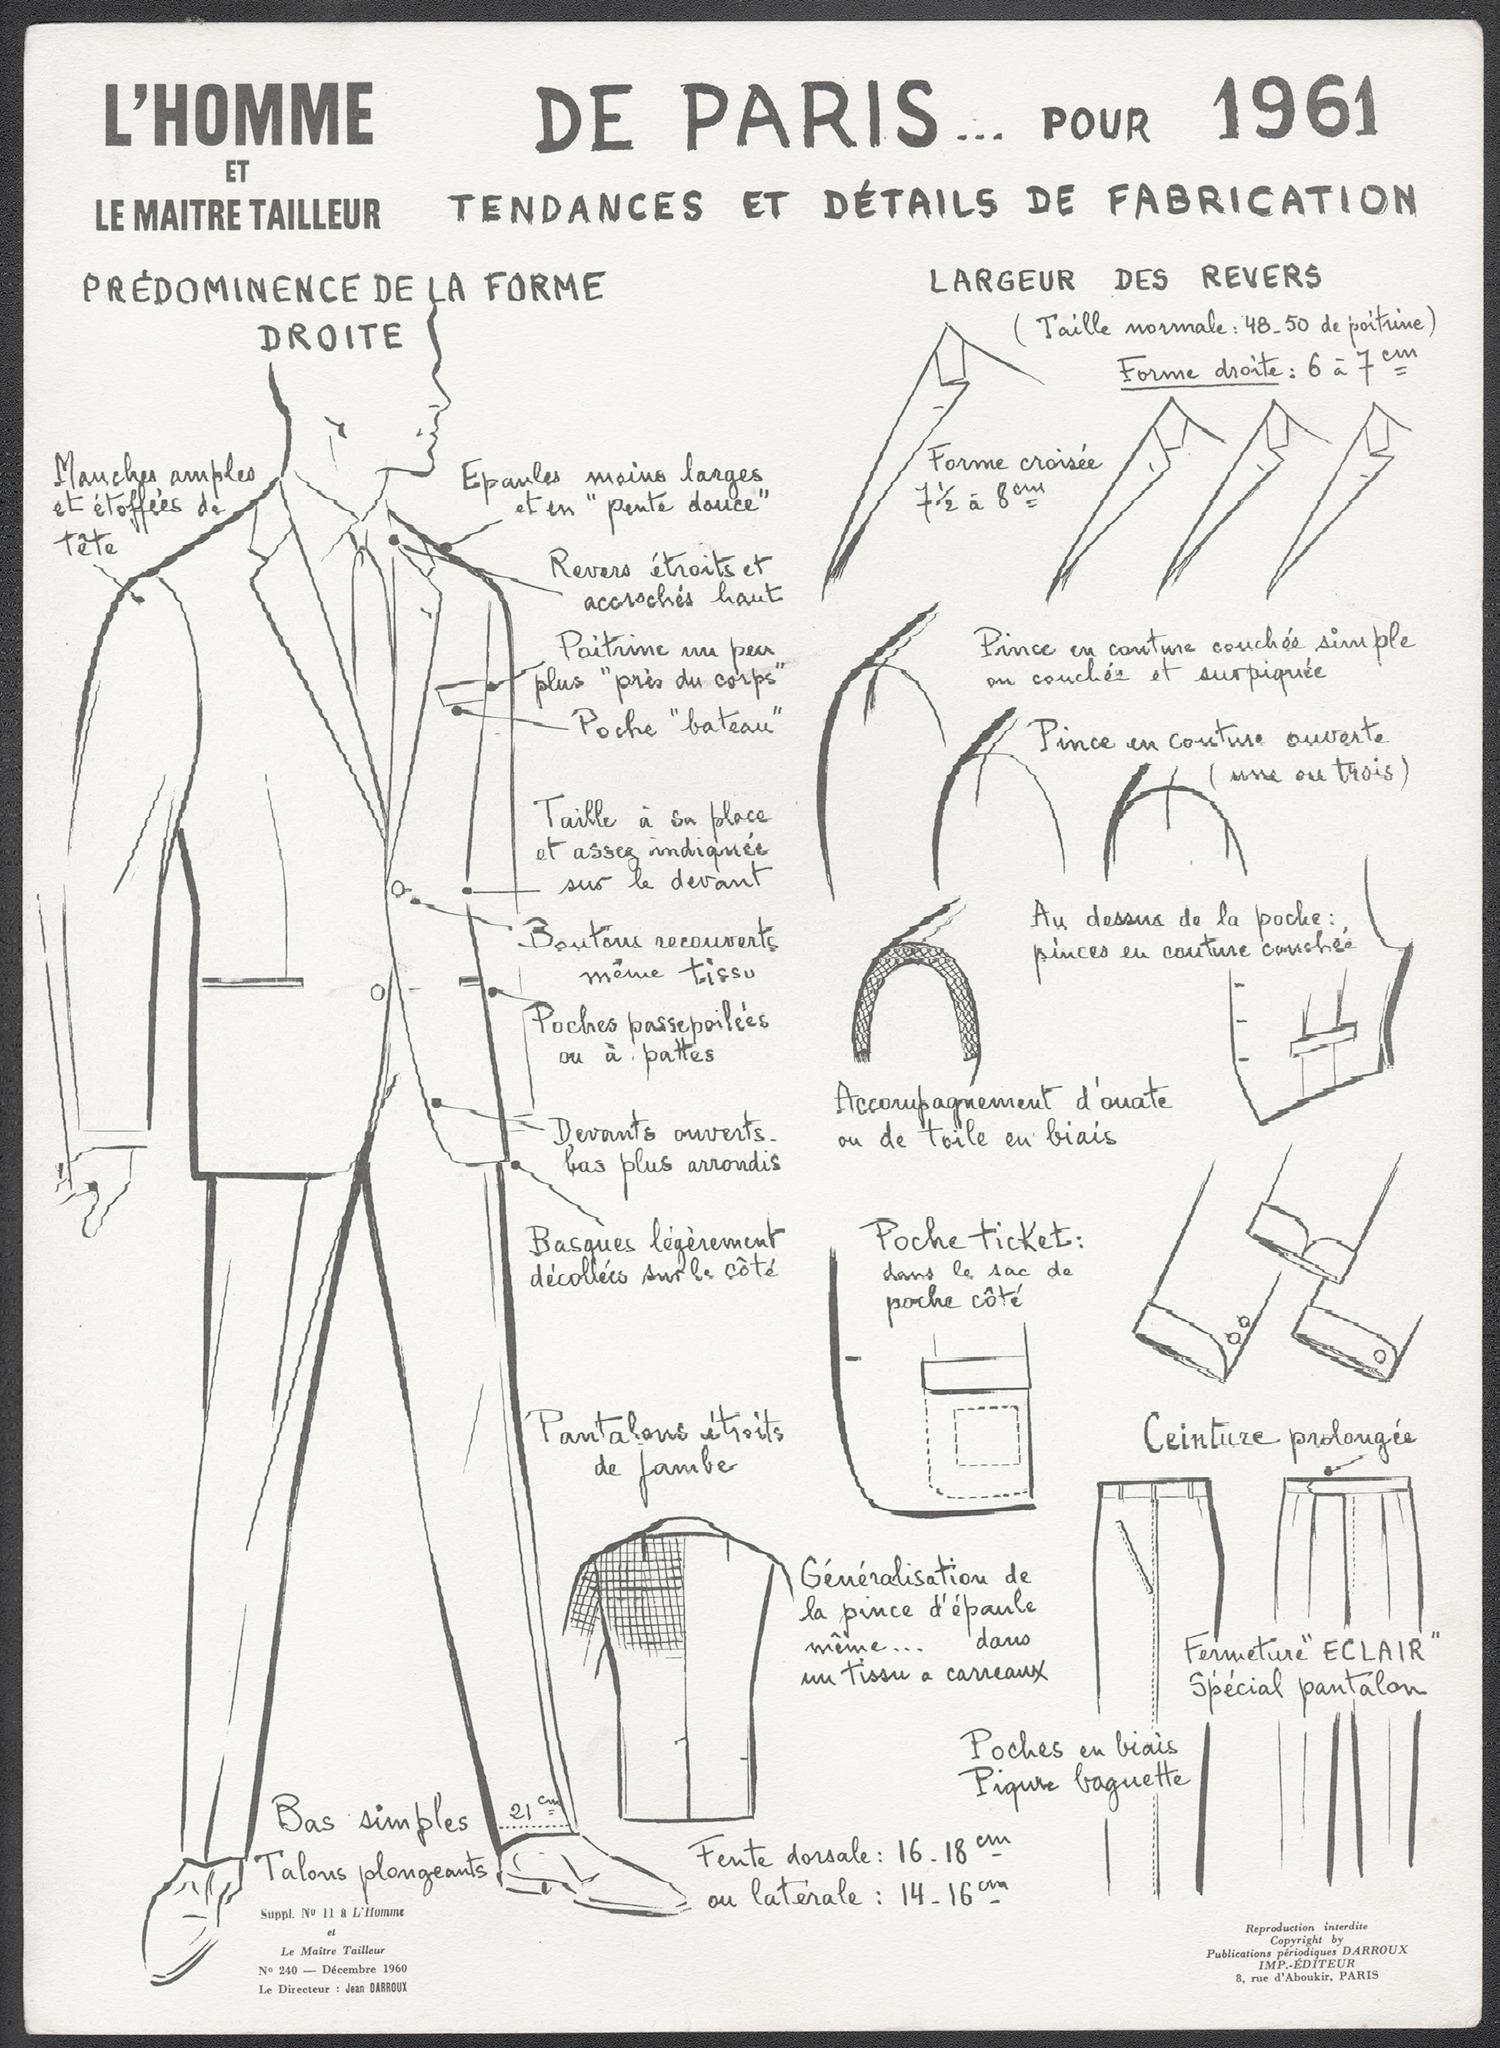 L'HOMME
ET
LE MAITRE TAILLEUR
DE PARIS... POUR 1961
TENDANCES ET DÉTAILS DE FABRICATION
PRÉDOMINENCE DE LA FORME
DROITE
Manches amples
et étoffées de
tête
Epaules moins larges
et en "pente douce"
Revers étroits et
accrochés haut
Poitrine un peu
plus "près du corps"
Poche "bateau"
Taille à sa place
et assez indiquée
sur le devant
Boutons recouverts
même tissu
Poches passepoilées
ou à pattes
Devants ouverts.
bas plus arrondis
Basques légèrement
décollées sur le côté
Pantalons étroits
de jambe
21 cm
Bas simples
Talons plongeants
LARGEUR DES REVERS
(Taille normale: 48-50 de poitrine)
Forme droite: 6 à 7 cm
Forme croisée
7 1/2 à 8 cm
Pince en couture couchée simple
ou couchée et surpiquée
Pince en couture ouverte
(une ou trois)
Au dessus de la poche:
pinces en couture couchée
Accompagnement d'ouate
ou de toile en biais
Poche ticket:
dans le sac de
poche côté
Ceinture prolongée
Généralisation de
la pince d'épaule
même... dans
un tissu a carreaux
Fermeture "ECLAIR"
Spécial pantalon
Poches en biais
Piqure baguette
Fente dorsale: 16-18 cm
ou latérale: 14-16 cm
Suppl. No 11 à L'Homme
et
Le Maître Tailleur
No 240 — Décembre 1960
Le Directeur : Jean DARROUX
Reproduction interdite
Copyright by
Publications périodiques DARROUX
IMP.-ÉDITEUR
8, rue d'Aboukir, PARIS